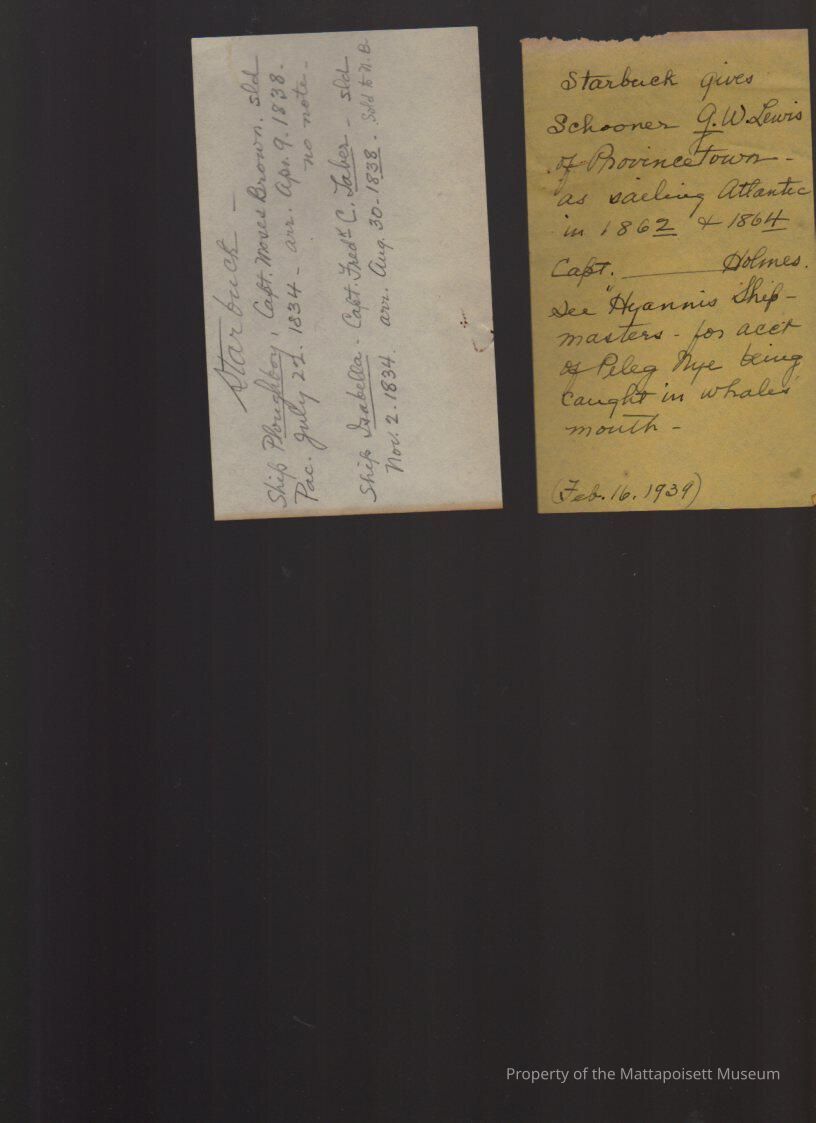 Starbuck –
Ship Ploughboy, Capt. Moses Brown. sld
Pac. July 21. 1834 – arr. Apr. 9. 1838.
no note –
Ship Isabella – Capt. Fredk C. Taber – sld
Nov. 2. 1834. arr. Aug. 30 – 1838. Sold to N.B.
Starbuck gives
Schooner G.W. Lewis
of Provincetown –
as sailing Atlantic
in 1862 & 1864
Capt. ______ Holmes.
See "Hyannis Ship-
masters – for acct
of Peleg Nye being
caught in whales'
mouth –
(Feb. 16. 1939)
Property of the Mattapoisett Museum